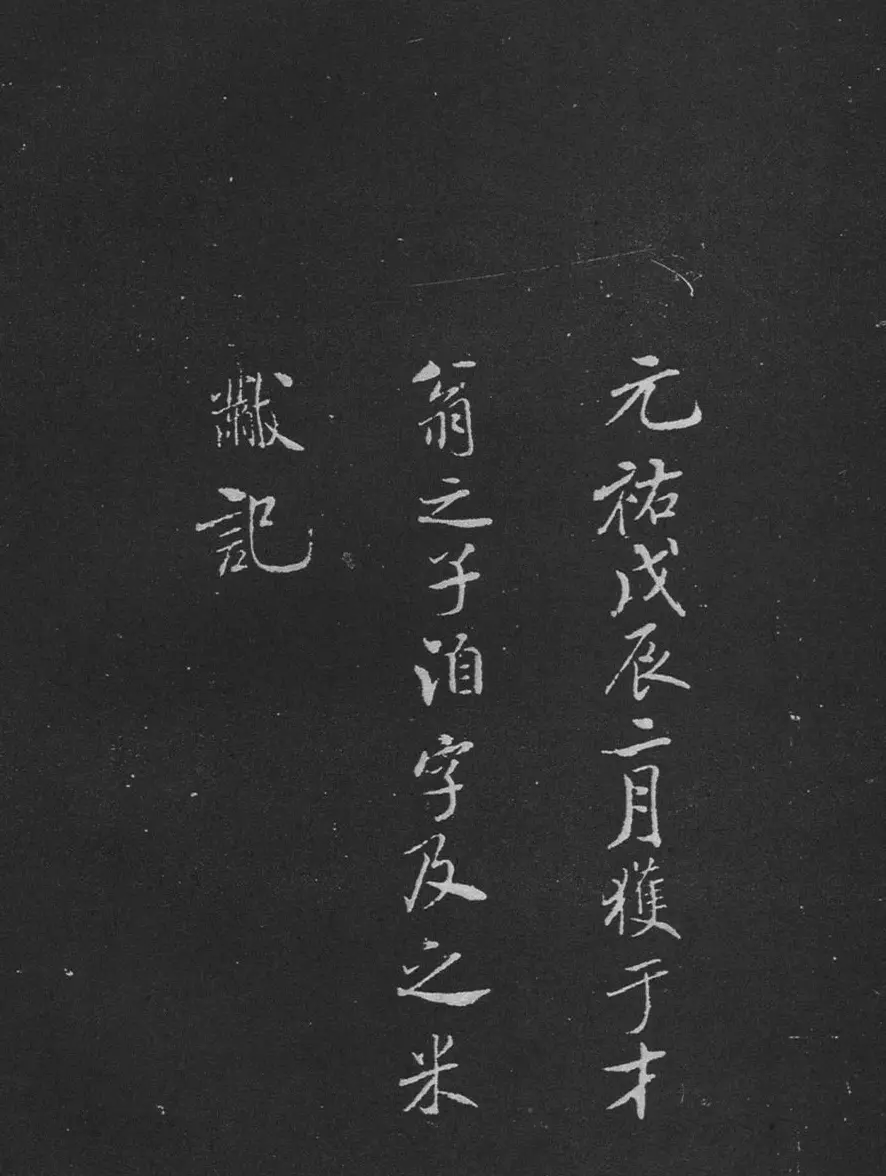 元祐戊辰二月獲于才
翁之子洎字及之米
黻記